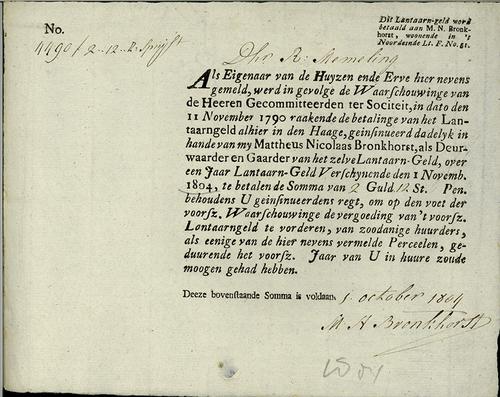 No.
4490 / 2-12-2. Spuijst
Dit Lantaarn-geld word
betaald aan M. N. Bronk-
horst, woonende in 't
Noordeinde Lt. F. No. 51.
Dhr A: Memeling
Als Eigenaar van de Huyzen ende Erve hier nevens
gemeld, werd in gevolge de Waarschouwinge van
de Heeren Gecommitteerden ter Societeit, in dato den
11 November 1790 raakende de betalinge van het Lan-
taarngeld alhier in den Haage, geinsinueerd dadelyk in
hande van my Mattheus Nicolaas Bronkhorst, als Deur-
waarder en Gaarder van het zelve Lantaarn-Geld, over
een Jaar Lantaarn-Geld Verschynende den 1 Novemb.
1804, te betalen de Somma van 2 Guld. 12 St. Pen.
behoudens U geinsinueerdens regt, om op den voet der
voorsz. Waarschouwinge de vergoeding van 't voorsz.
Lantaarngeld te vorderen, van zoodanige huurders,
als eenige van de hier nevens vermelde Perceelen, ge-
duurende het voorsz. Jaar van U in huure zoude
moogen gehad hebben.
Deeze bovenstaande Somma is voldaan, 1 october 1804
M N Bronkhorst
1804